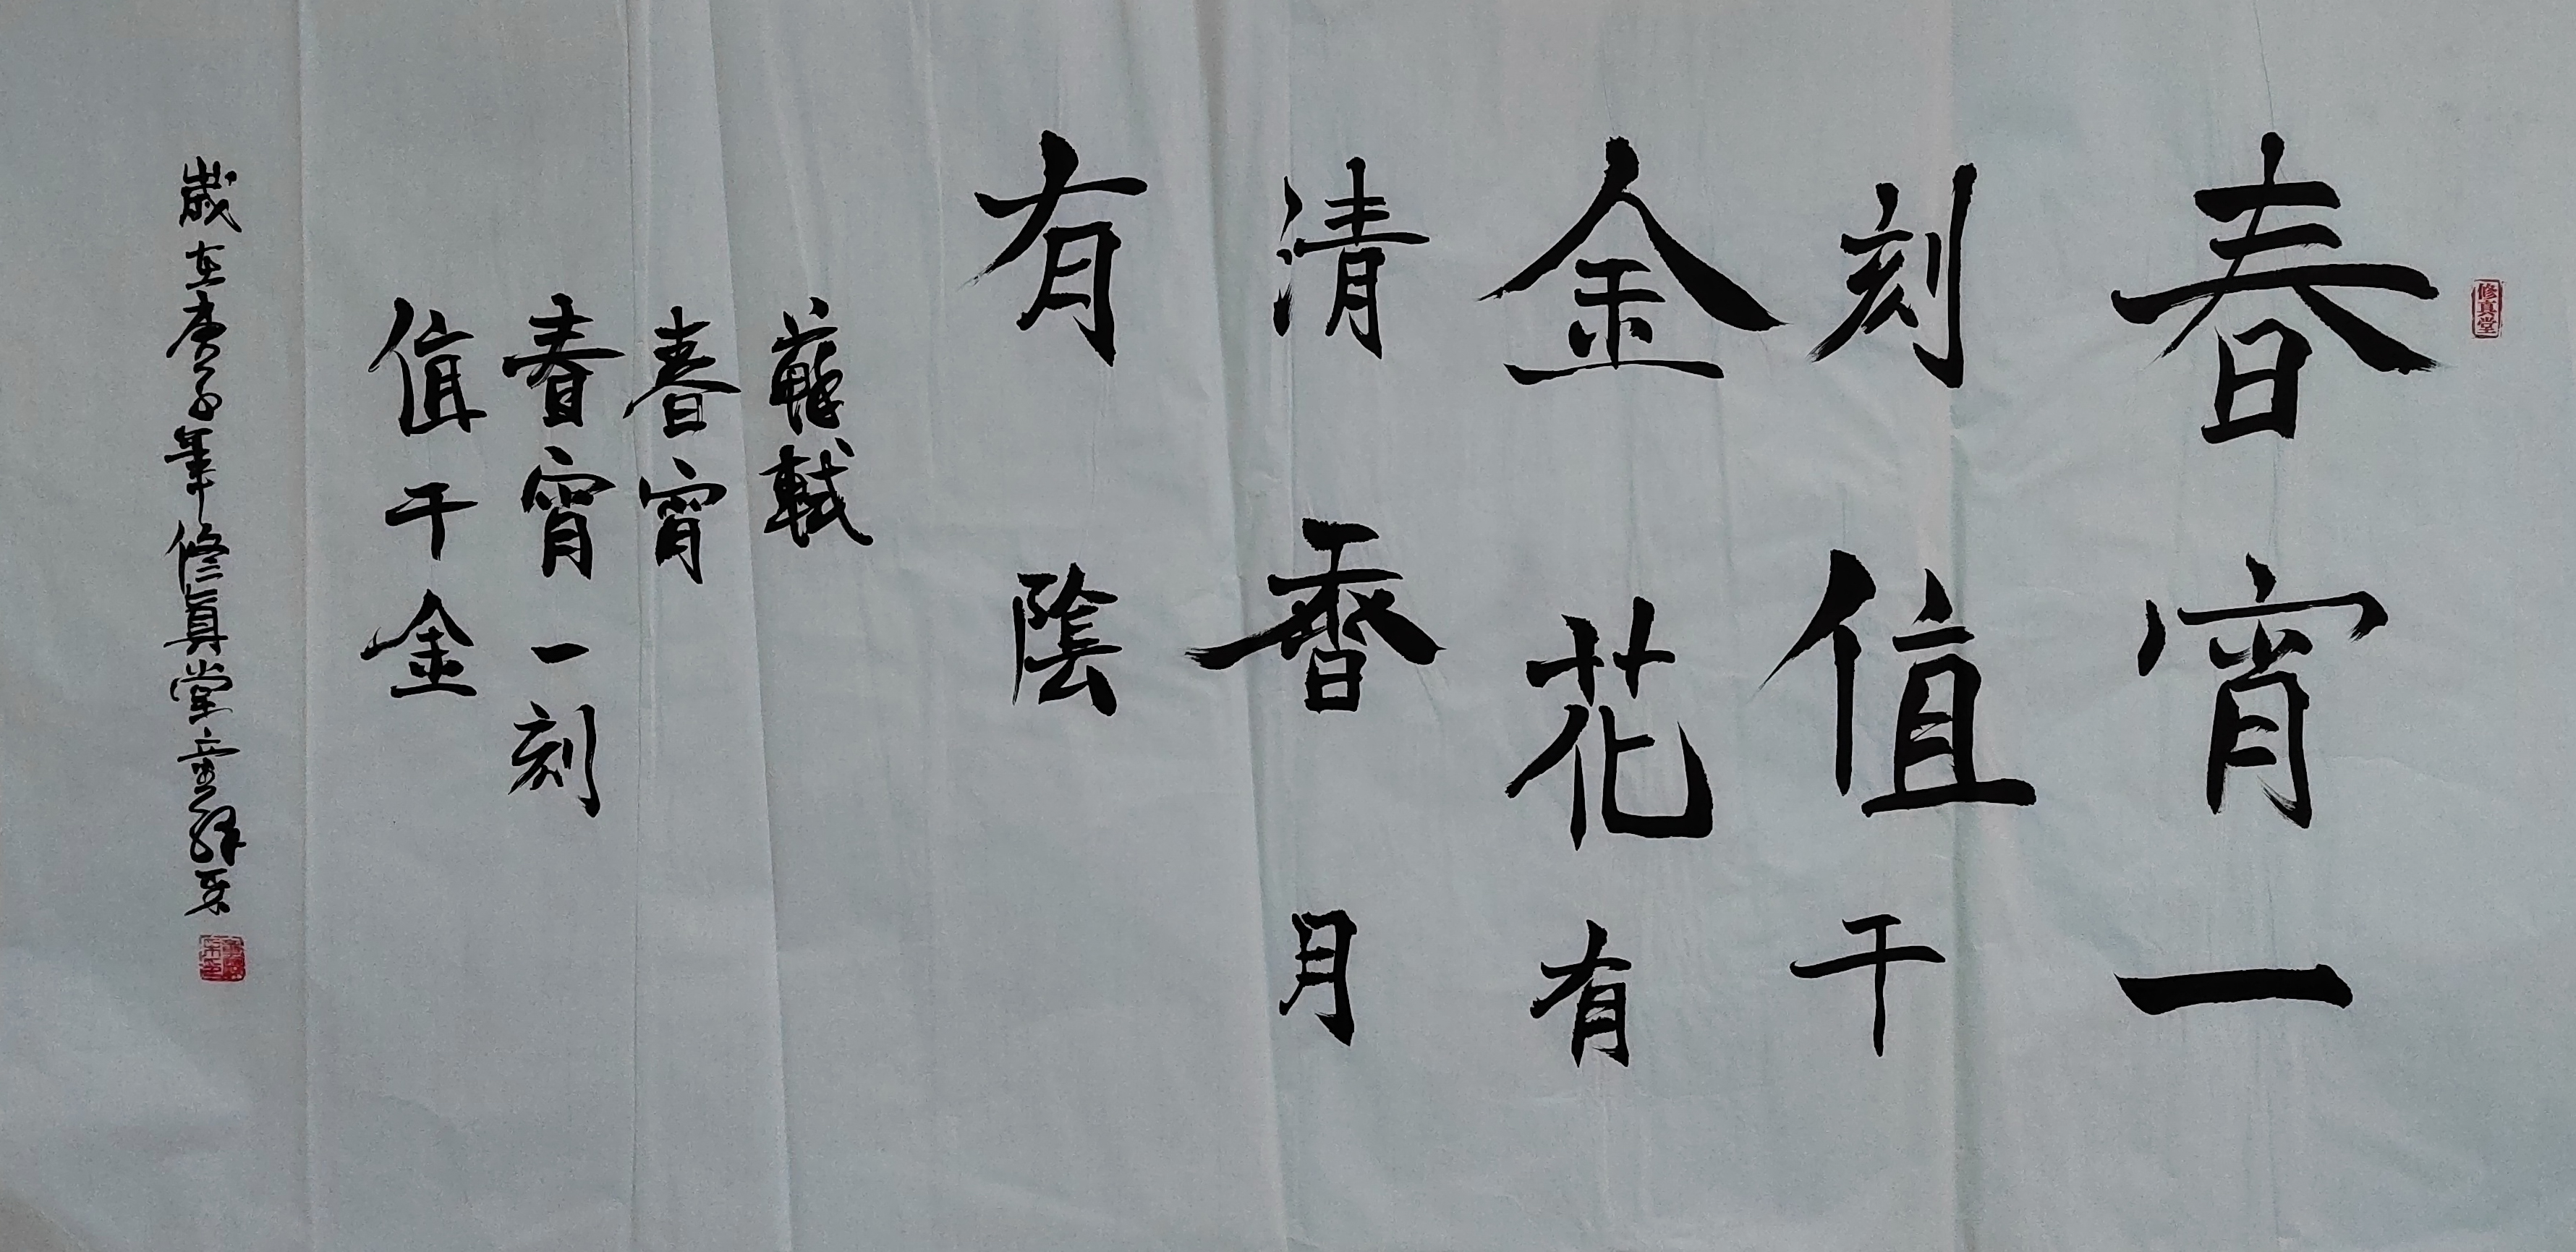 修真堂
春宵一
刻值千
金花有
清香月
有陰
蘇軾
春宵
春宵一刻
值千金
歲在庚子年修真堂童